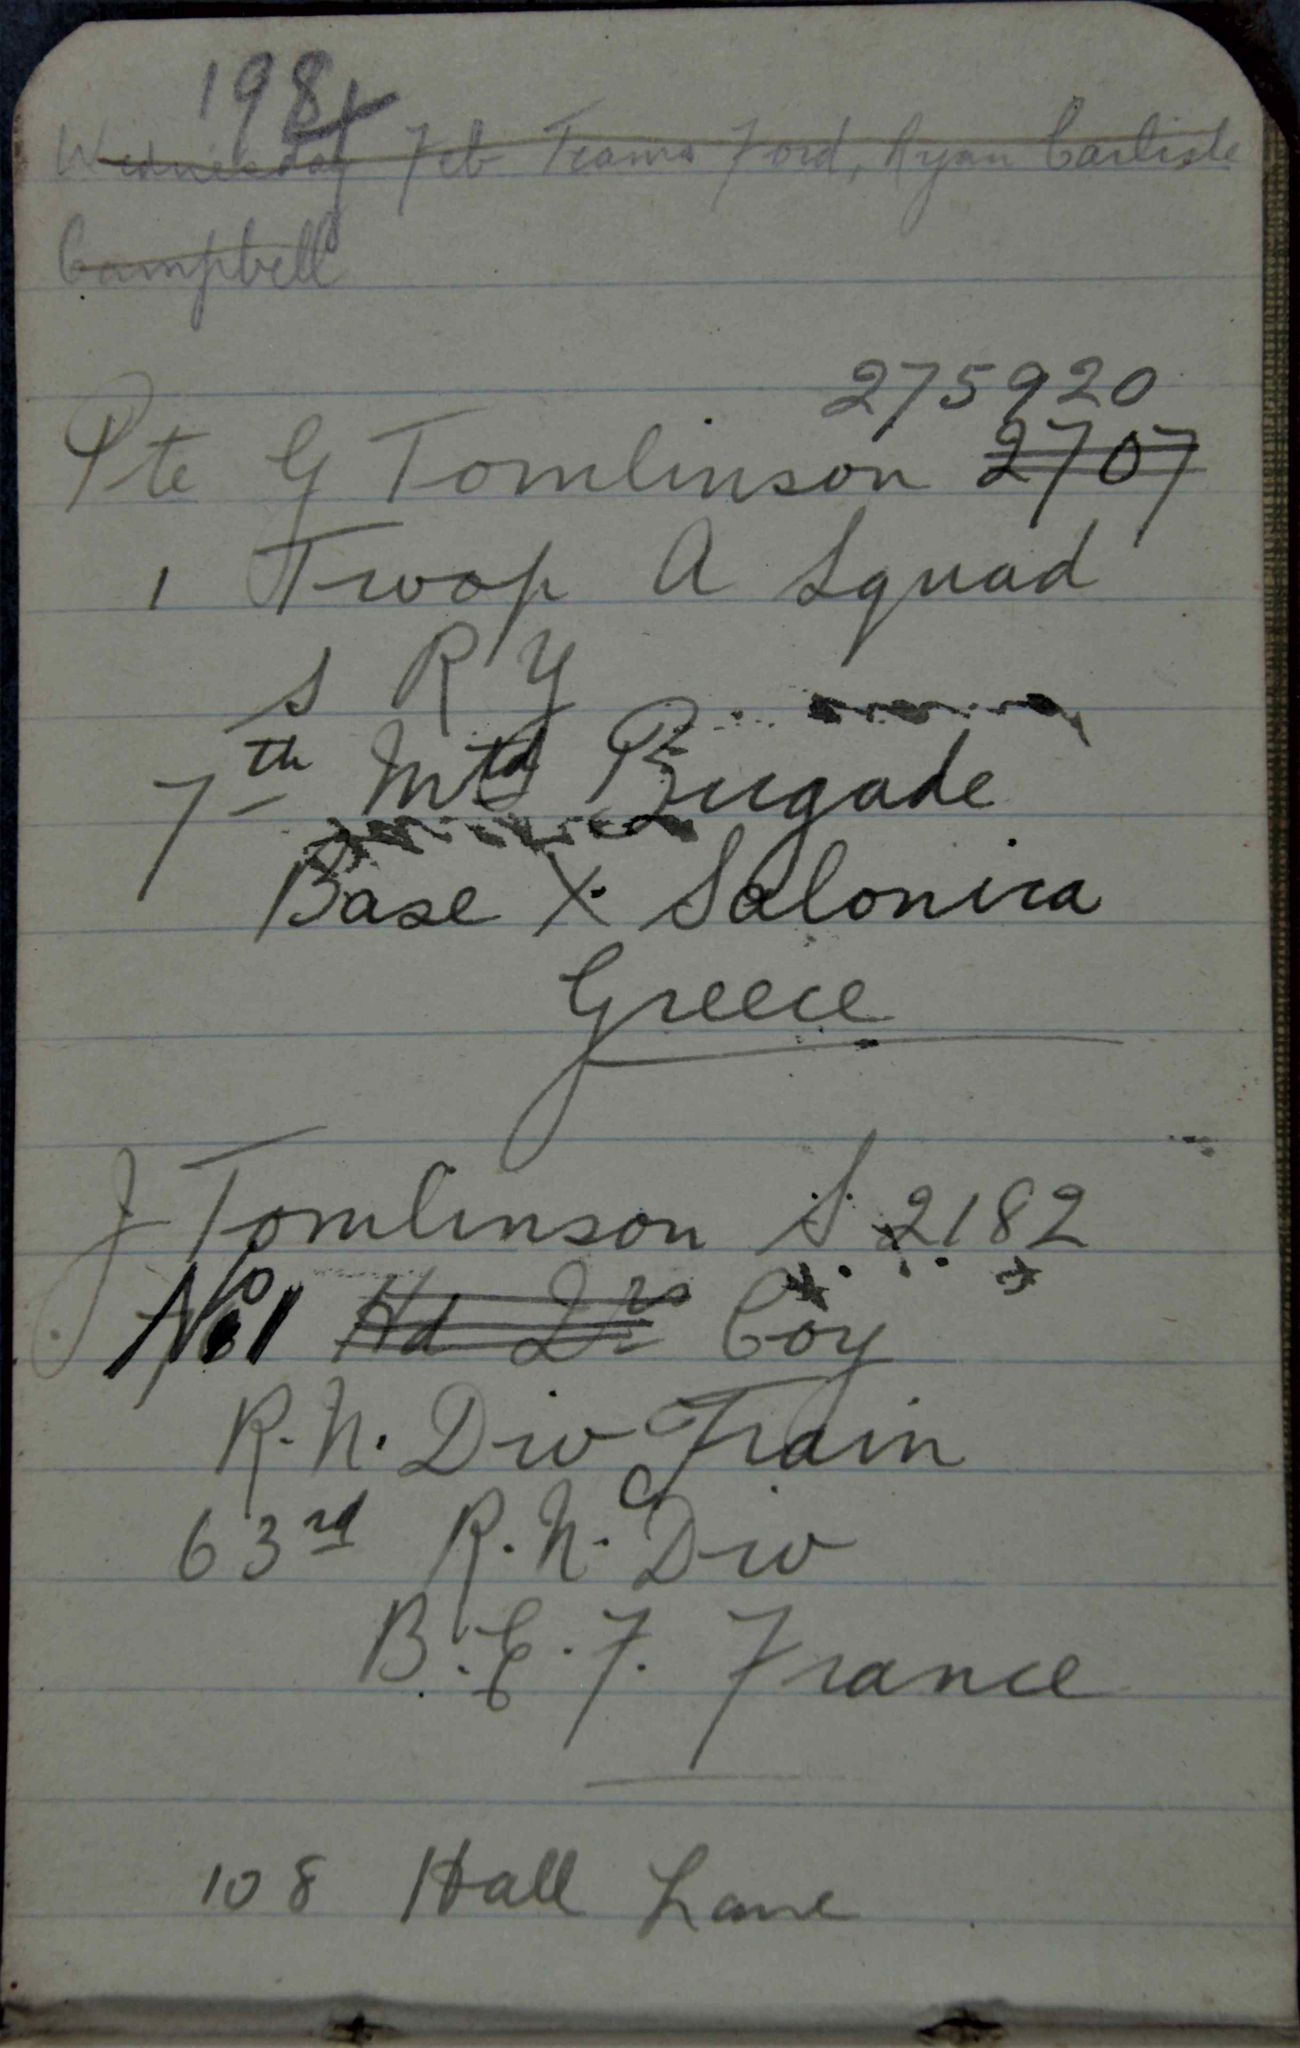 198
Wednesday Feb Teams Ford, Ryan Carlisle
Campbell
275920
Pte G Tomlinson 2707
1 Troop A Squad
S R Y
7th Mtd Brigade
Base X Salonica
Greece
J Tomlinson S. 2182
No 1 Hd Qrs Coy
R. N. Div Train
63rd R. N. Div
B. E. F. France
108 Hall Lane